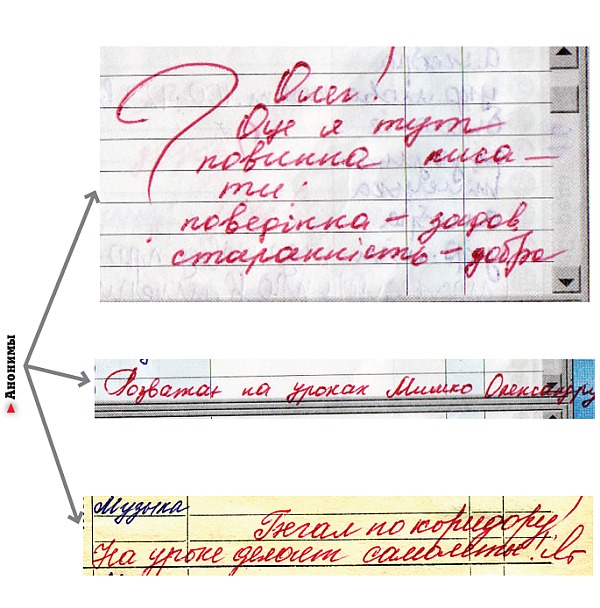 Анонимы
Олег!
Оце я тут
повинна писа–
ти:
поведінка – задов
старанність – добра
Розважає на уроках Мишко Олександру
Музыка
Бегал по коридору!
На уроке делает самолеты!